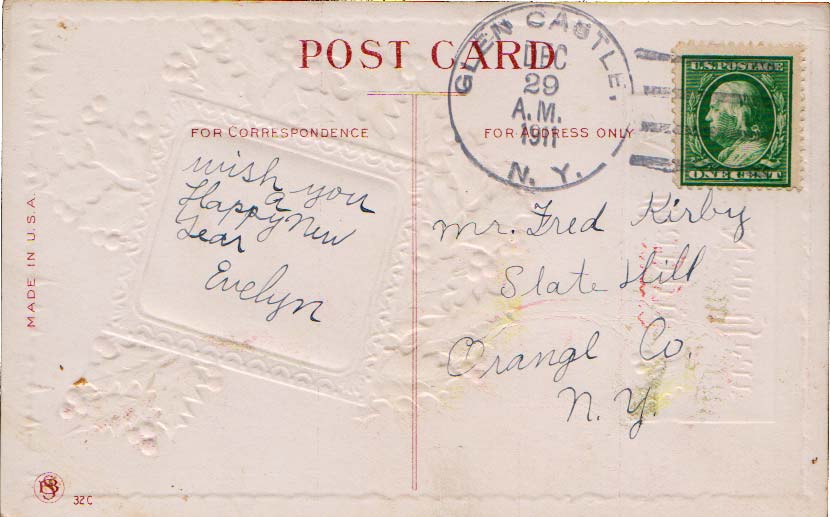 POST CARD
GLEN CASTLE,
DEC
29
A.M.
1911
N. Y.
U.S. POSTAGE
ONE CENT
FOR CORRESPONDENCE
FOR ADDRESS ONLY
wish you
a
Happy New
Year
Evelyn
Mr. Fred Kirby
Slate Hill
Orange Co.
N. Y.
MADE IN U.S.A.
32C